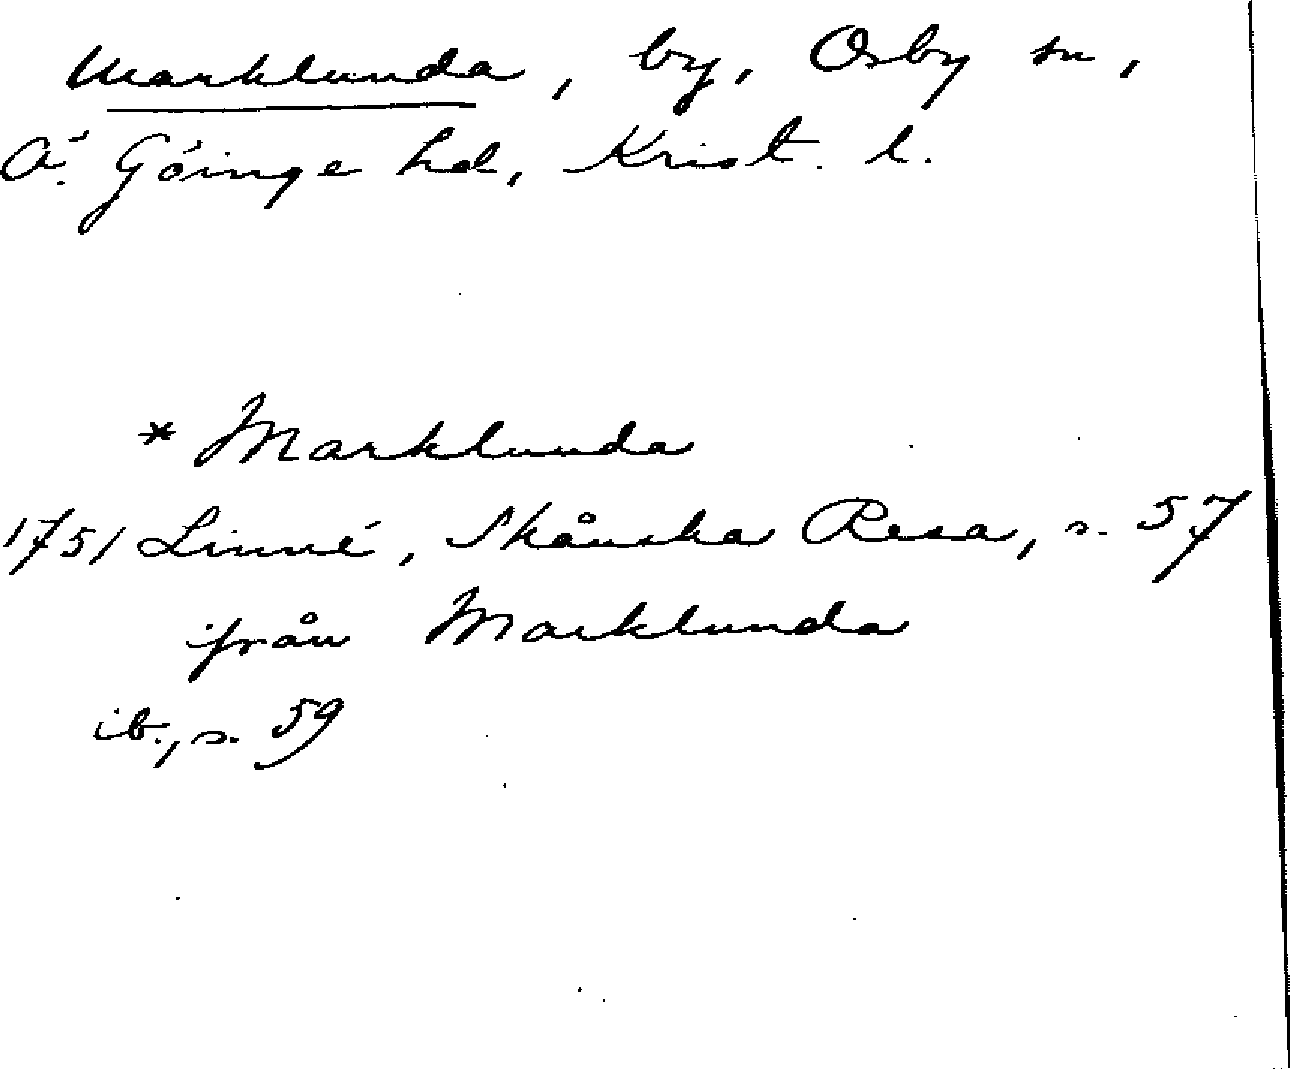 Marklunda, by, Osby sn,
Ö. Göinge hd, Krist. l.
* Marklunda
1751 Linné, Skånska Resa, s. 57
från Marklunda
ib., s. 59